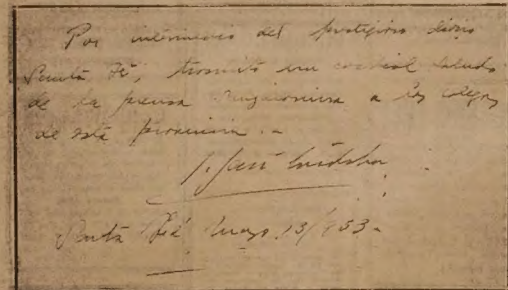 Por intermedio del prestigioso diario
Santa Fé, trasmito un cordial saludo
de la prensa misionera a los colegas
de esta provincia. -
Santa Fé Mayo 13/953 -